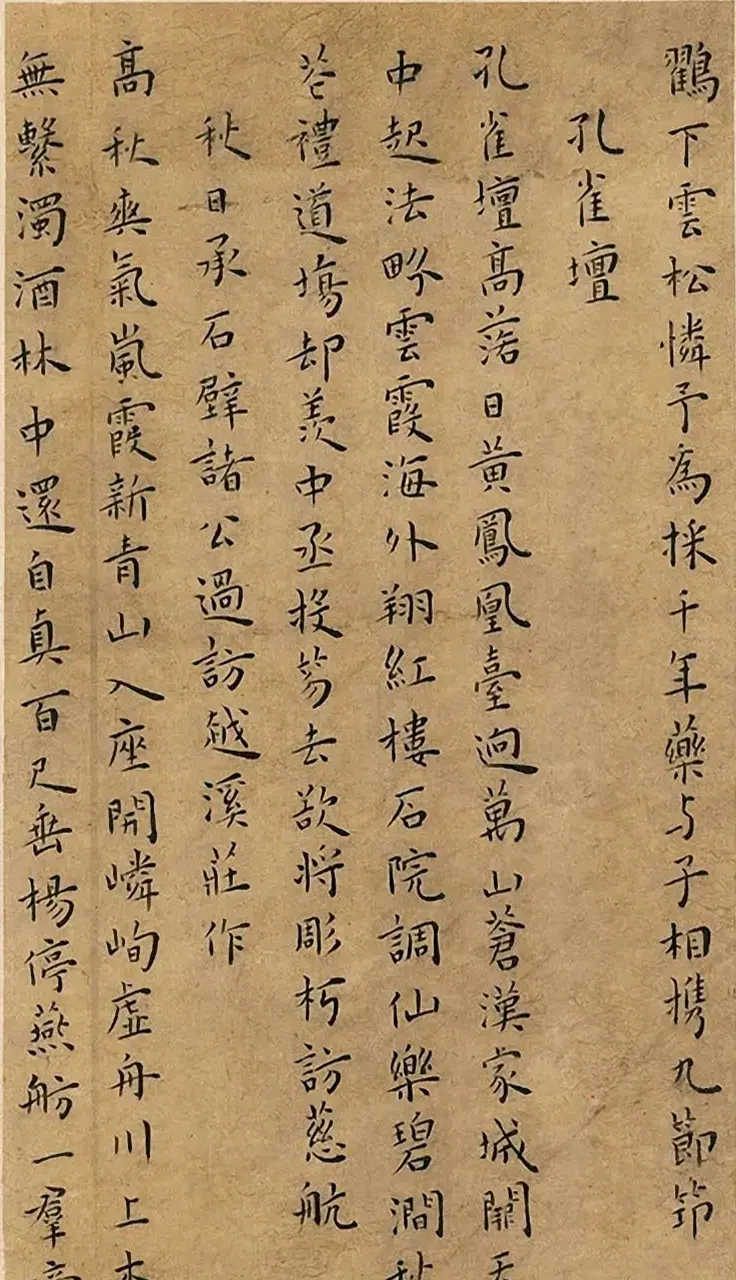 鸛下雲松憐予為採千年藥与子相携九節筇
孔雀壇
孔雀壇高落日黃鳳凰臺迥萬山蒼漢家城闕天
中起法眎雲霞海外翔紅樓石院調仙樂碧澗秋
苍禮道場却羨中丞投笏去欲將彫朽訪慈航
秋日承石壁諸公過訪越溪莊作
高秋爽氣嵐霞新青山入座開嶙峋虛舟川上本
無繫濁酒林中還自真百尺垂楊停燕舫一群高